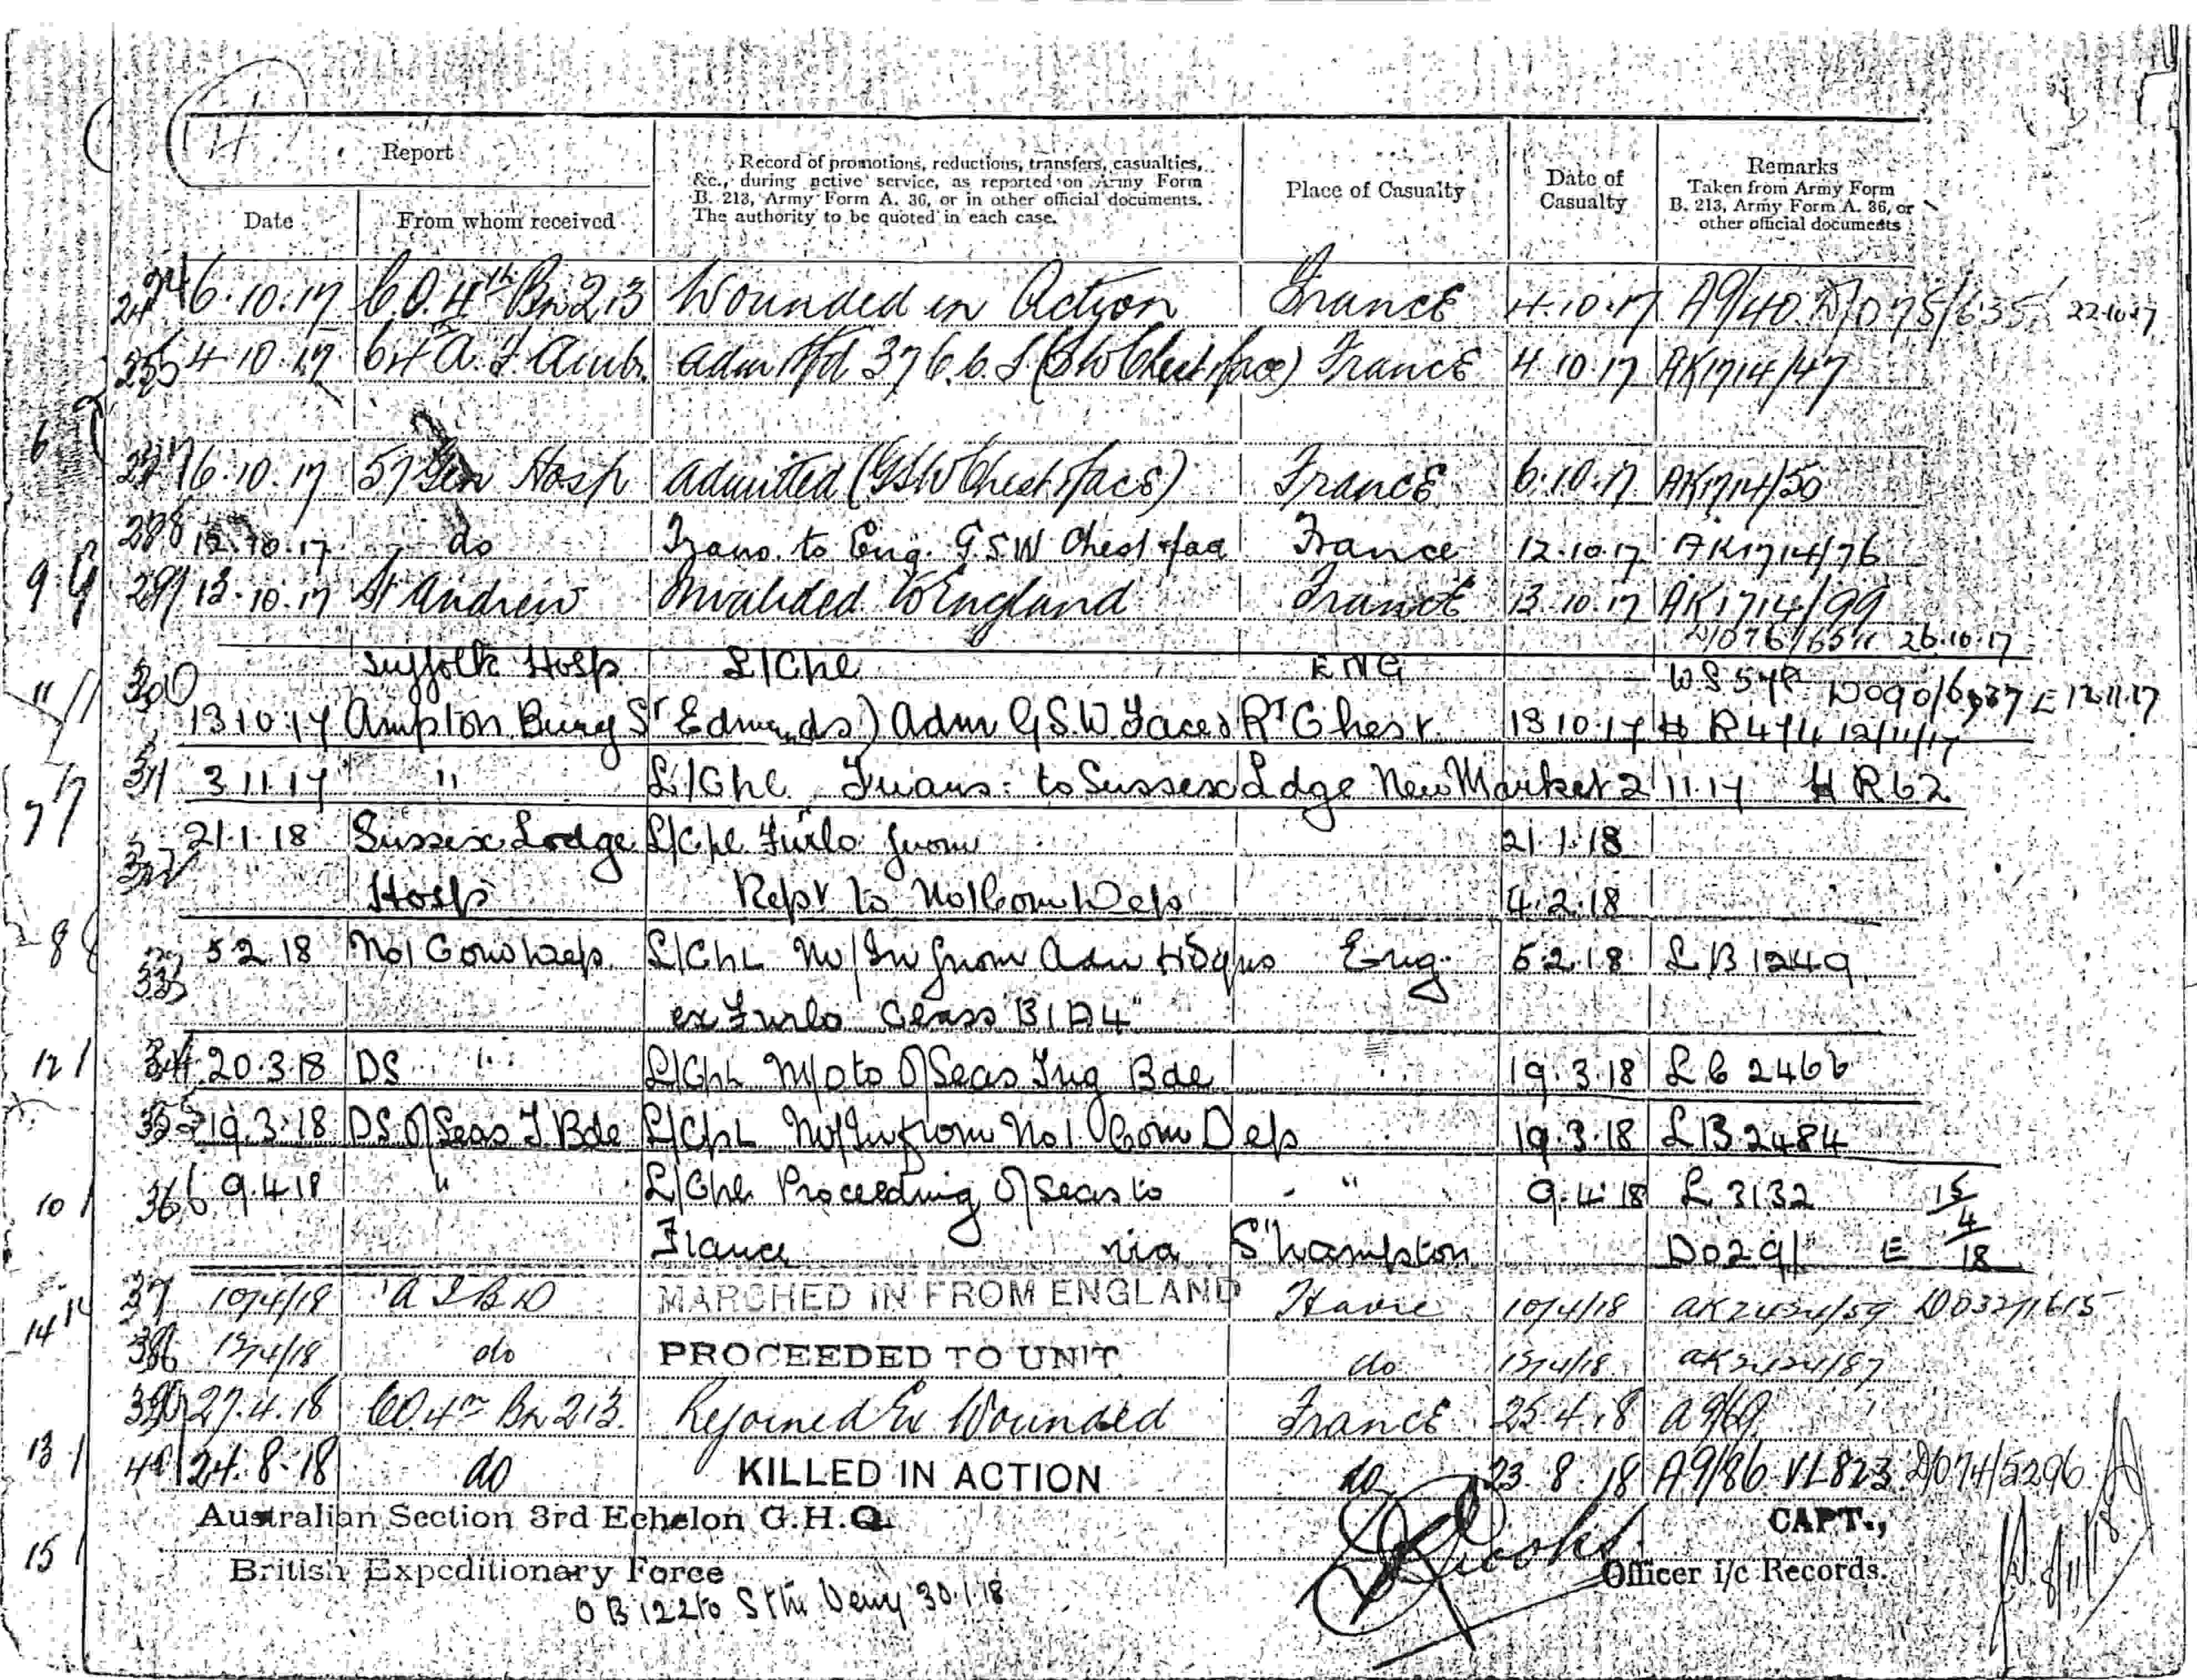 4
Report
Record of promotions, reductions, transfers, casualties, &c., during active service, as reported on Army Form B. 213, Army Form A. 36, or in other official documents. The authority to be quoted in each case.
Place of Casualty
Date of Casualty
Remarks
Taken from Army Form B. 213, Army Form A. 36, or other official documents
Date
From whom received
6.10.17 C.O. 4th Bn 213 Wounded in Action France 4.10.17 A9/40 22.10.17
4.10.17 Adm 37 C.C.S (GSW Chest face) France 4.10.17 AK1714/47
6.10.17 57 Gen Hosp Admitted (GSW Chest face) France 6.10.17 AK1714/50
12.10.17 do Trans. to Eng. GSW Chest face France 12.10.17 AK1714/76
13.10.17 St Andrew Invalided to England France 13.10.17 AK1714/99
26.10.17
30 Suffolk Hosp. L/Cpl ENG
13 10.17 Ampton Bury St Edmunds) Adm G.S.W. Face & Rt Chest. 13 10.17 H R474 12/11/17
E 12.11.17
31 3.11.17 " L/Cpl. Trans: to Sussex Ldge New Market 2 11.17 H R62
32 21.1.18 Sussex Lodge L/Cpl Furlo from 21.1.18
Hosp Rept to No 1 Com Dep 4.2.18
33 5 2.18 No 1 Com Dep. L/Cpl M/In from Adm Hdqrs Eng. 5.2.18 LB 1249
ex Furlo Class "B1A4"
34 20.3.18 DS " L/Cpl M/O to O/Seas Trg Bde 19.3.18 LB 2466
35 19.3.18 DS O/Seas T. Bde L/Cpl M/In from No 1 Com Dep 19.3.18 LB 2484
36 9.4.18 " L/Cpl Proceeding O/Seas to " 9.4.18 L 3132 15/4/18
France via S'hampton DO 29/ E
37 10/4/18 A I B D MARCHED IN FROM ENGLAND Havre 10/4/18
38 do PROCEEDED TO UNIT do
39 27.4.18 CO. 4th Bn 213. Rejoined Ex Wounded France 25.4.18
40 24.8.18 do KILLED IN ACTION do 23.8.18 A9/86 VL823 DO74/5296
Australian Section 3rd Echelon G.H.Q.
CAPT.,
British Expeditionary Force
Officer i/c Records.
30.1.18